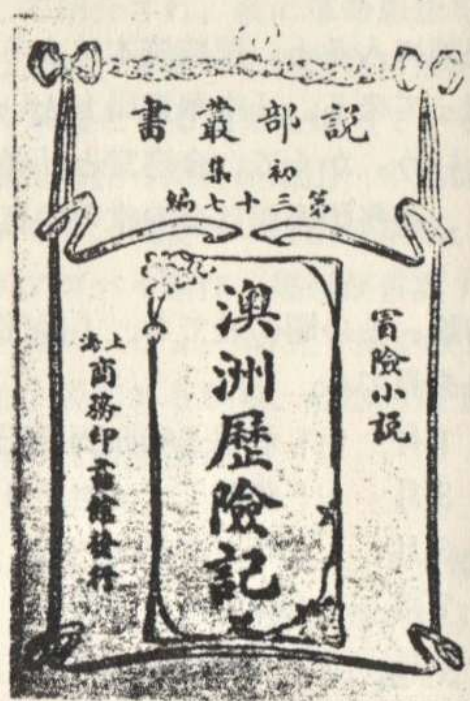 説部叢書
初集
第三十七編
冒險小説
澳洲歷險記
上海商務印書館發行